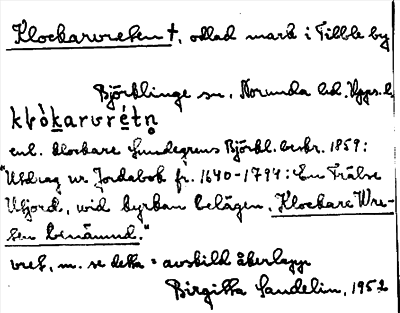 Klockarvreten †, odlad mark i Tibble by
Björklinge sn, Norunda hd. Upps. l.
enl. klockare Lundegrens Björkl. beskr. 1859:
"Utdrag ur Jordabok fr. 1640-1794: En Trälse
Utjord, wid byrkan belägen, Klockare Wre-
ten benämnd."
vret, m. se detta = avskild åkerlapp
Birgitta Sandelin, 1952